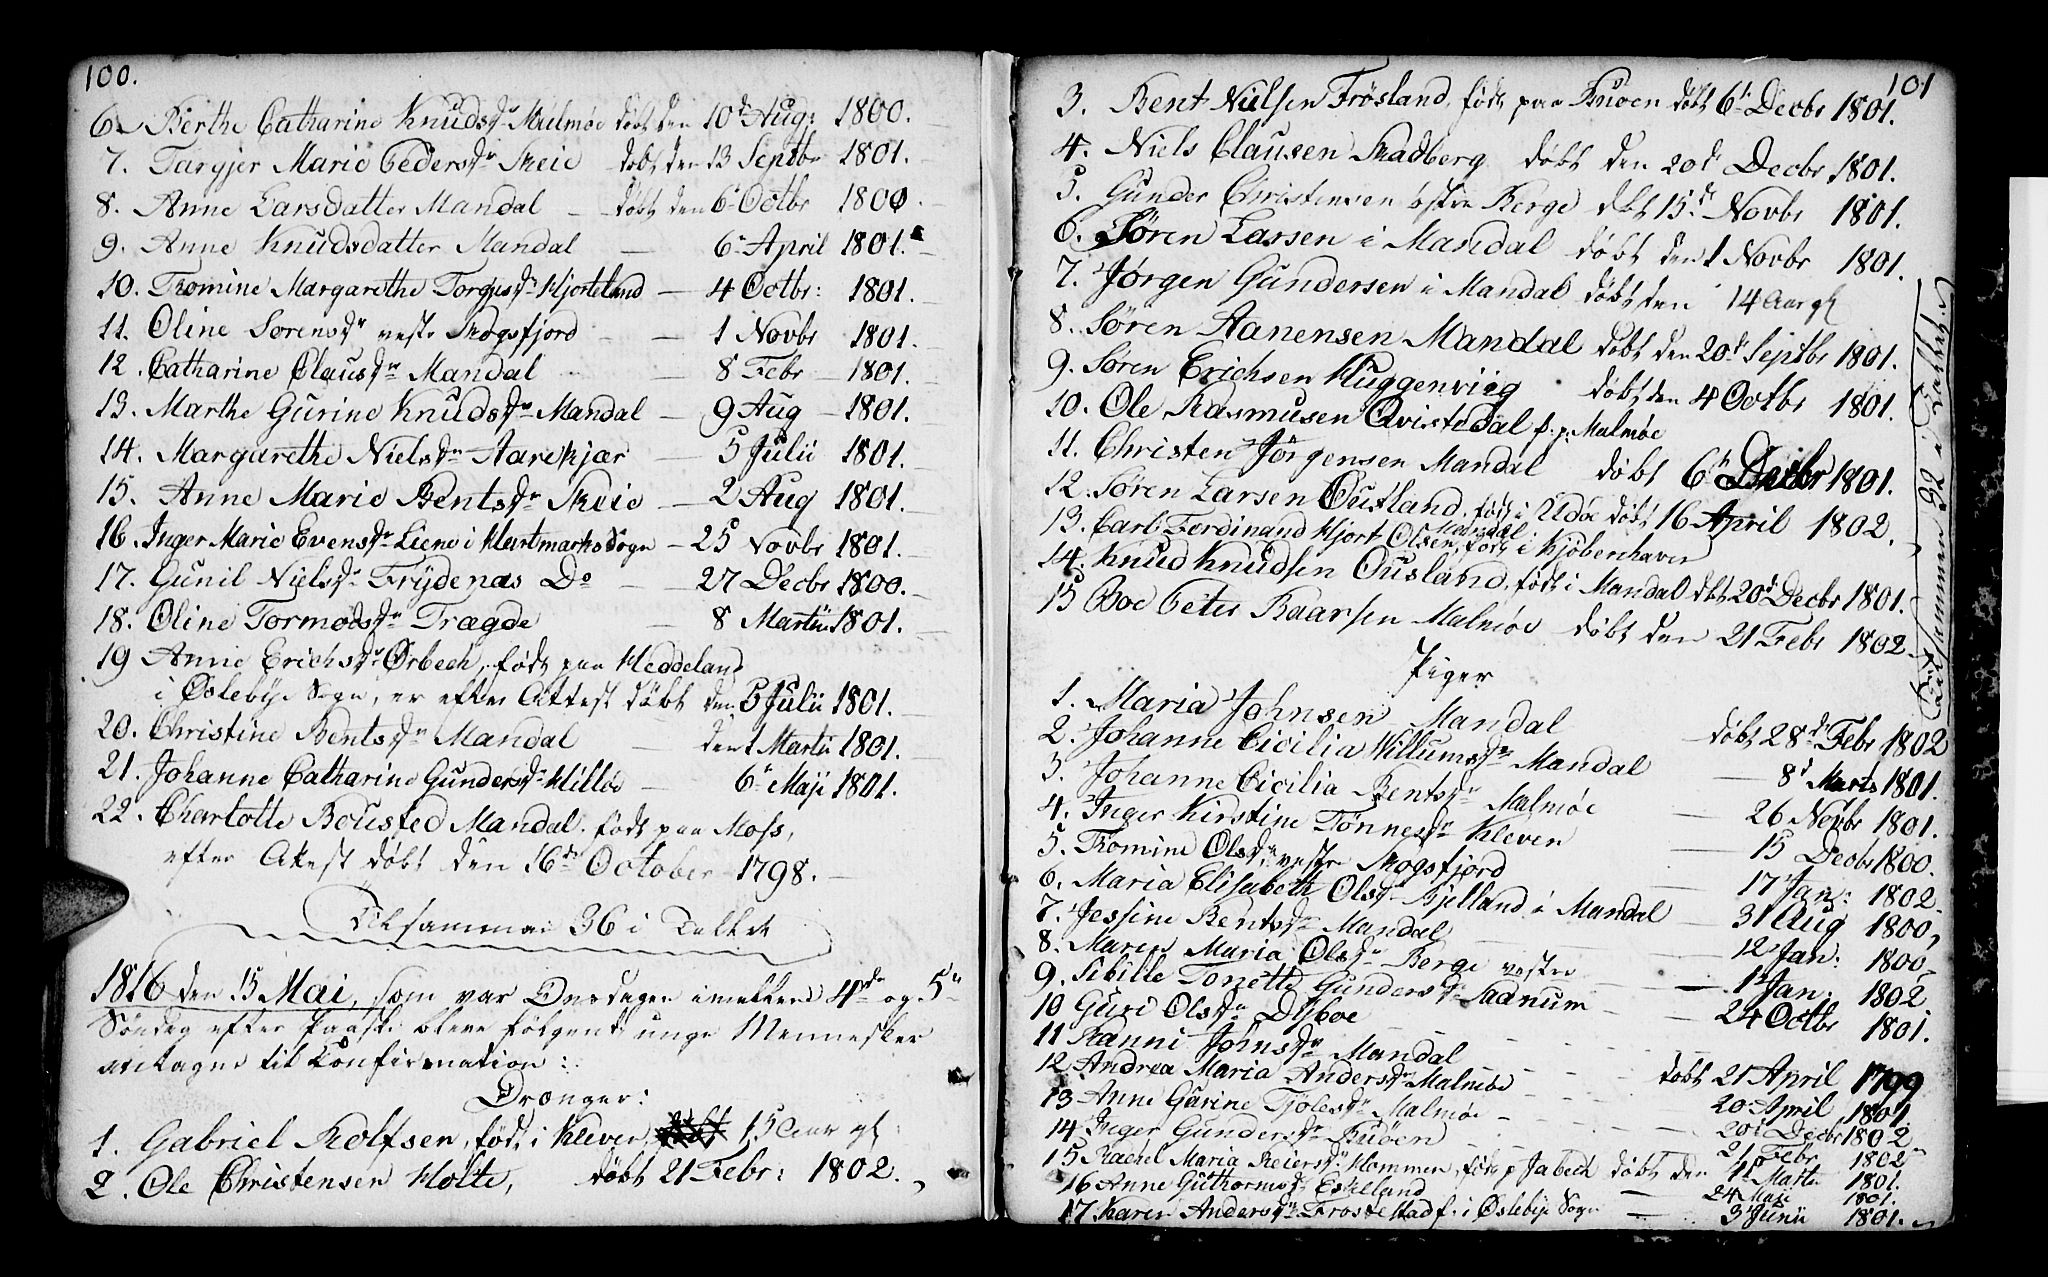 100.
6. Berthe Catharine Knudsdr Malmøe døbt den 10de Aug: 1800.
7. Targjer Marie Pedersdr Skeie døbt den 13 Septbr 1801.
8. Anne Larsdatter Mandal – døbt den 6 Octbr 1800.
9. Anne Knudsdatter Mandal – 6 April 1801.
10. Tromine Margarethe Torgusdr Hjorteland – 4 Octbr: 1801.
11. Oline Sørensdr vestre Skogsfjord – 1 Novbr 1801.
12. Catharine Clausdr Mandal – 8 Febr – 1801.
13. Marthe Gurine Knudsdr Mandal – 9 Aug – 1801.
14. Margarethe Nielsdr Aarekjær – 5 Julii 1801.
15. Anne Marie Bentsdr Skeie – 2 Aug 1801.
16. Inger Marie Evensdr Liene i Hartmarks Sogn – 25 Novbr 1801.
17. Gunil Nielsdr Frydenæs Do – 27 Decbr 1800.
18. Oline Tormodsdr Trægde – 8 Martii 1801.
19 Anne Erichsdr Ørbech, født paa Heddeland
i Øslebye Sogn, er efter Attest døbt den 5 Julii 1801.
20. Christine Bentsdr Mandal – den 1 Martii 1801.
21. Johanne Catharine Gundersdr Hilloe – 6 Maji 1801.
22. Charlotte Bousted Mandal, født paa Moss,
efter Attest døbt den 16de October 1798.
Tilsammen 36 i Tallet
1816 den 15 Mai, som var Onsdagen imellem 4de og 5te
Søndag efter Paaske bleve følgende unge Mennesker
antagne til Confirmation:
Drænger:
1. Gabriel Rolfsen, født i Kleven, 15 Aar gl.
2. Ole Christensen Holte, døbt 21 Febr: 1802.
101
3. Bent Nielsen Frøsland, født paa Buøen døbt 6 Decbr 1801.
4. Niels Clausen Skadberg døbt den 20de Decbr 1801.
5. Gunder Christensen østre Berge døbt 15de Novbr 1801.
6. Søren Larsen i Mandal døbt den 1 Novbr 1801.
7. Jørgen Gundersen i Mandal døbt den 14 Aar gl
8. Søren Aanensen Mandal døbt den 20de Septbr 1801.
9. Søren Erichsen Huggenviig døbt den 4 Octbr 1801.
10. Ole Rasmusen Qvistedal f. p. Malmøe
11. Christen Jørgensen Mandal døbt 6te Decbr 1801.
12. Søren Larsen Ousland, født i Udøe døbt 16 April 1802.
13. Carl Ferdinand Hjort Olsen, Mandal født i Kjøbenhavn
14. Knud Knudsen Ousland, født i Mandal døbt 20de Decbr 1801.
15 Boe Peter Baarsen Malmøe døbt den 21 Febr 1802.
Tilsammen 32 i Tallet
Piger
1. Maria Johnsen Mandal døbt 28de Febr 1802
2. Johanne Cicilia Willumsdr Mandal – 8de Marts 1801.
3. Johanne Cicilia Bentsdr Malmøe – 26 Novbr 1801.
4. Inger Kirstine Tønnesdr Kleven – 15 Decbr 1800.
5. Tromine Olsdr vestre Skogsfjord – 17 Jan: 1802.
6. Maria Elisabeth Olsdr Kjelland i Mandal – 31 Aug 1800,
7. Jessine Bentsdr Mandal – 12 Jan: 1800.
8. Maren Maria Olsdr Berge vestre – 1 Jan: 1802
9. Sibille Tonette Gundersdr Sadnum – 24 Octbr 1801.
10 Guri Olsdr Dyboe
11 Ranni Johnsdr Mandal døbt 21 April 1799
12 Andrea Maria Andersdr Malmøe – 20 April 1801
13 Anne Gurine Tjølesdr Malmøe – 20 Decbr 1802
14 Inger Gundersdr Buøen – 21 Febr 1802
15 Rachel Maria Reiersdr Hommen, født p Jabech døbt den 1 Martii 1801.
16 Anne Guthormsdr Eskelland – 24 Maji 1801.
17 Karen Andersdr Frøstestad f. i Øslebye Sogn – 3 Junii 1801.